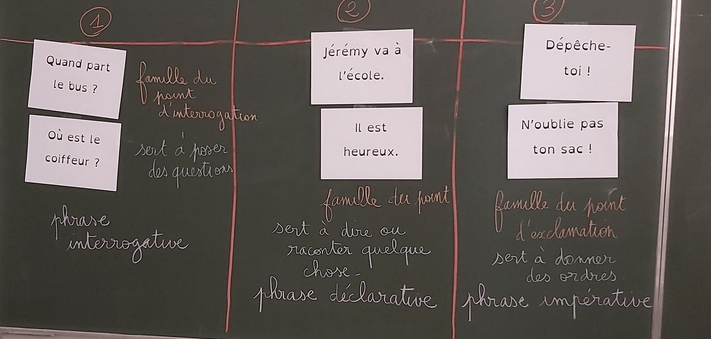 1
Quand part
le bus ?
famille du
point
d'interrogation
Où est le
coiffeur ?
sert à poser
des questions
phrase
interrogative
2
Jérémy va à
l'école.
Il est
heureux.
famille du point
sert à dire ou
raconter quelque
chose.
phrase déclarative
3
Dépêche-
toi !
N'oublie pas
ton sac !
famille du point
d'exclamation
sert à donner
des ordres
phrase impérative